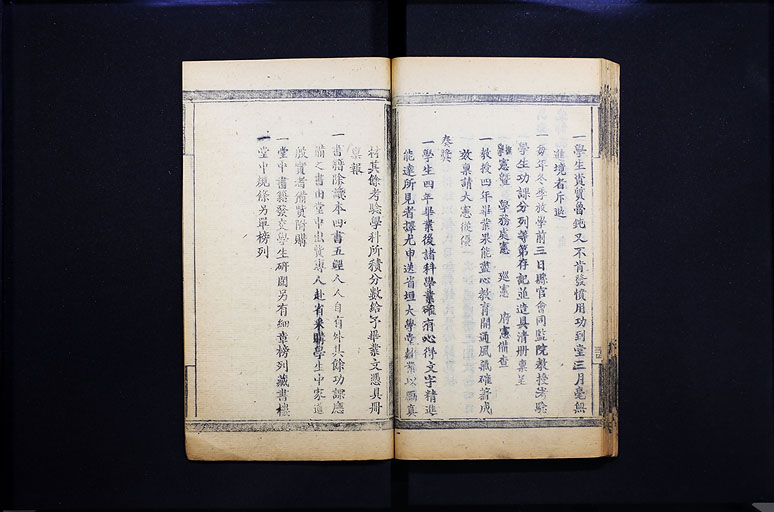 一學生資質魯鈍又不肯發憤用功到堂三月毫無
進境者斥退
一每年冬季放學前三日縣官會同監院教授考驗
學生功課分列等第存記並造具清册稟呈
憲暨 學務處憲 巡憲 府憲備查
一教授四年畢業果能盡心教育開通風氣確著成
效稟請大憲從優
奏獎
一學生四年畢業後諸科學業確有心得文字精進
能達所見者擇尤申送省垣大學堂肄業以厲真
材其餘考驗學科所積分數給予畢業文憑具冊
稟報
一書籍除讀本四書五經人人自有外其餘功課應
備之書由堂中出貲專人赴省采購學生中家道
殷實者備貲附購
一堂中書籍發交學生研閱另有細章榜列藏書樓
一堂中規條另單榜列